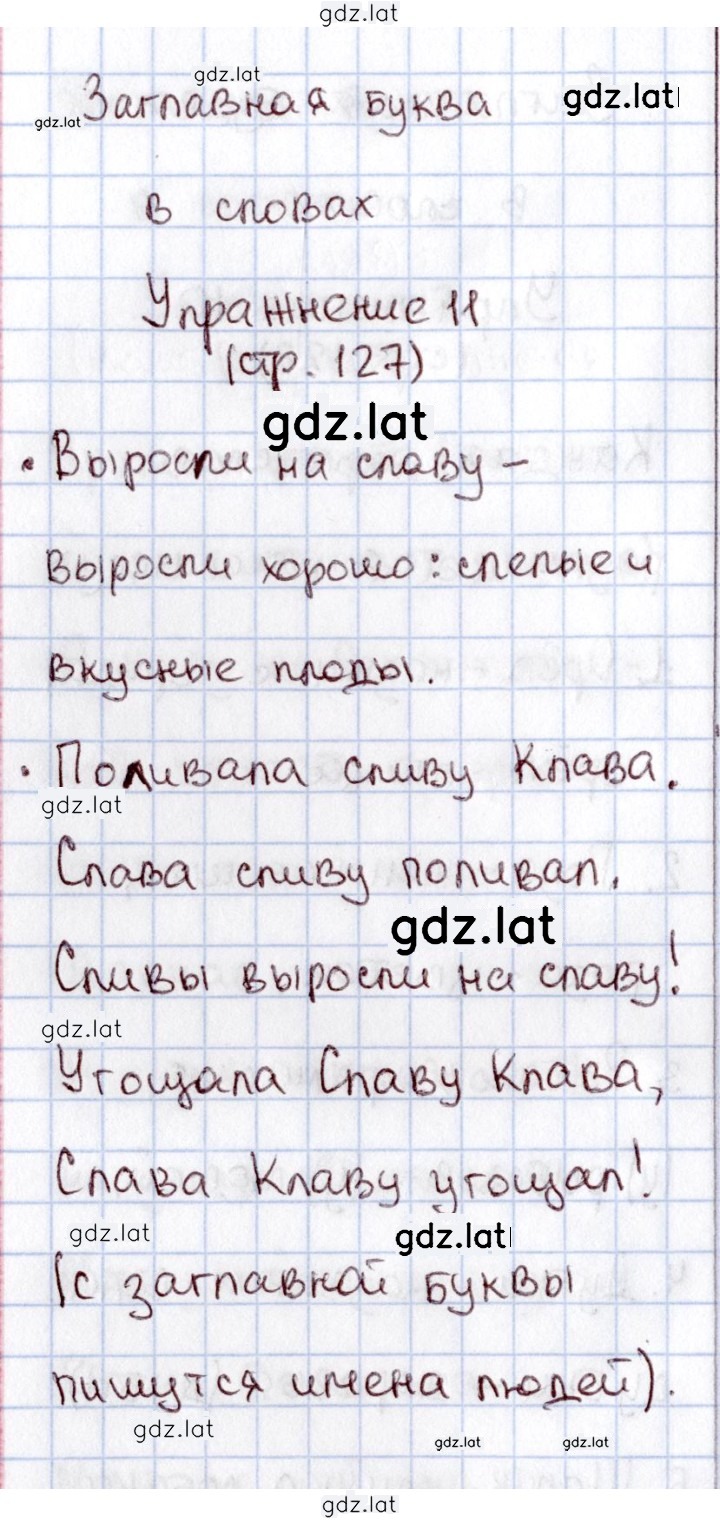 gdz.lat
gdz.lat
Заглавная буква
gdz.lat
gdz.lat
в словах
Упражнение 11
(стр. 127)
gdz.lat
• Выросли на славу –
выросли хорошо: спелые и
вкусные плоды.
• Поливала сливу Клава.
gdz.lat
Слава сливу поливал.
gdz.lat
Сливы выросли на славу!
gdz.lat
Угощала Славу Клава,
Слава Клаву угощал!
gdz.lat
gdz.lat
(с заглавной буквы
пишутся имена людей).
gdz.lat
gdz.lat
gdz.lat
gdz.lat